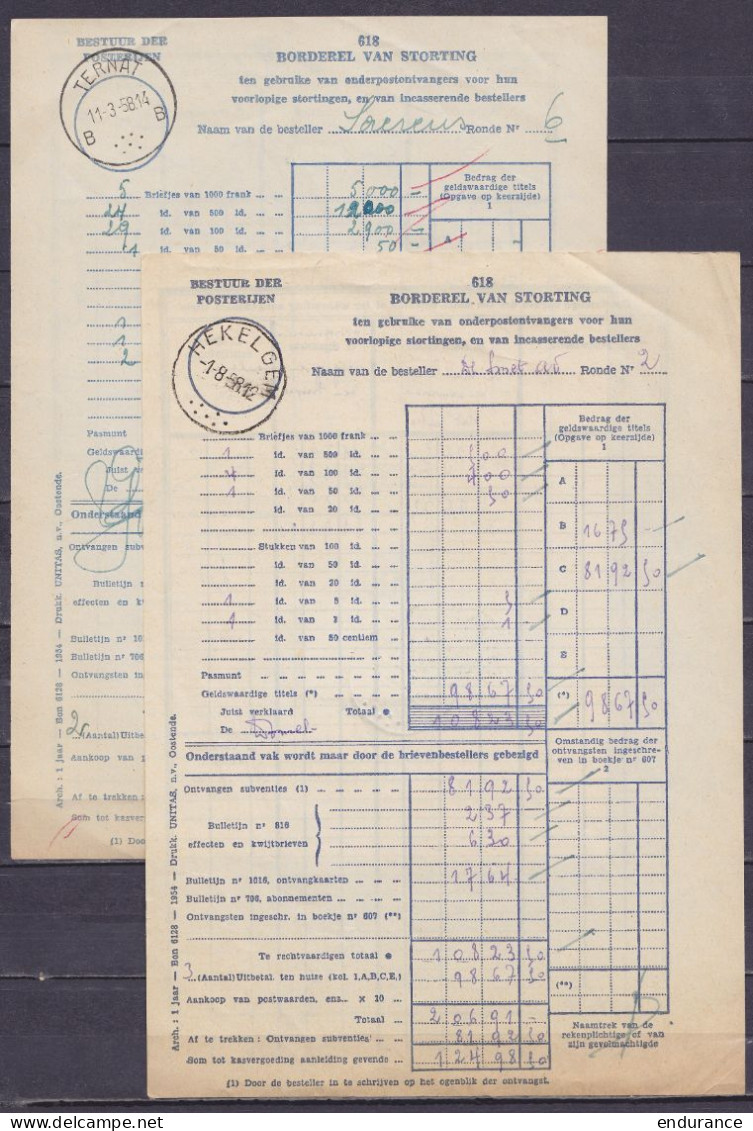 BESTUUR DER
POSTERIJEN
618
BORDEREL VAN STORTING
ten gebruike van onderpostontvangers voor hun
voorlopige stortingen, en van incasserende bestellers
TERNAT
11-3-58.14
B B
Naam van de besteller Ronde Nr 6
5 Briefjes van 1000 frank 5000 —
24 id. van 500 id. 12000
29 id. van 100 id. 2900 —
1 id. van 50 id. 50 —
Bedrag der
geldswaardige titels
(Opgave op keerzijde)
1
A
1
1
2
Pasmunt
Geldswaardi
Juist ve
De
Onderstaand
Ontvangen subv
Bulletijn n
effecten en kw
Bulletijn nr 101
Bulletijn nr 706
Ontvangsten in
2 (Aantal) Uitbet
Aankoop van
Af te trekken :
Som tot kasver
(1) Doo
Arch. : 1 jaar — Bon 6128 — 1954 — Drukk. UNITAS, n.v., Oostende.
BESTUUR DER
POSTERIJEN
618
BORDEREL VAN STORTING
ten gebruike van onderpostontvangers voor hun
voorlopige stortingen, en van incasserende bestellers
HEKELGEM
-1-8-58.12
Naam van de besteller De Smet Ronde Nr 2
Briefjes van 1000 frank
1 id. van 500 id. 500
4 id. van 100 id. 400
1 id. van 50 id. 50
id. van 20 id.
Stukken van 100 id.
id. van 50 id.
id. van 20 id.
1 id. van 5 id. 5
1 id. van 1 id. 1
id. van 50 centiem
Pasmunt
Geldswaardige titels (*) 9867 50
Juist verklaard Totaal 10823 50
De
Bedrag der
geldswaardige titels
(Opgave op keerzijde)
1
A
B 1675 —
C 8192 50
D
E
(*) 9867 50
Onderstaand vak wordt maar door de brievenbestellers gebezigd
Omstandig bedrag der
ontvangsten ingeschre-
ven in boekje nr 607
2
Ontvangen subventies (1) 8192 50
237 —
Bulletijn nr 816
effecten en kwijtbrieven 630
Bulletijn nr 1016, ontvangkaarten 1764
Bulletijn nr 706, abonnementen
Ontvangsten ingeschr. in boekje nr 607 (**)
Te rechtvaardigen totaal 10823 50
3 (Aantal) Uitbetal. ten huize (kol. 1,A,B,C,E,) 9867 50
Aankoop van postwaarden, enz. x 10
Totaal 20691 —
Af te trekken : Ontvangen subventies 8192 50
Som tot kasvergoeding aanleiding gevende 12498 50
(**)
Naamtrek van de
rekenplichtige of van
zijn gevolmachtigde
(1) Door de besteller in te schrijven op het ogenblik der ontvangst.
Arch. : 1 jaar — Bon 6128 — 1954 — Drukk. UNITAS, n.v., Oostende.
delcampe.net
endurance